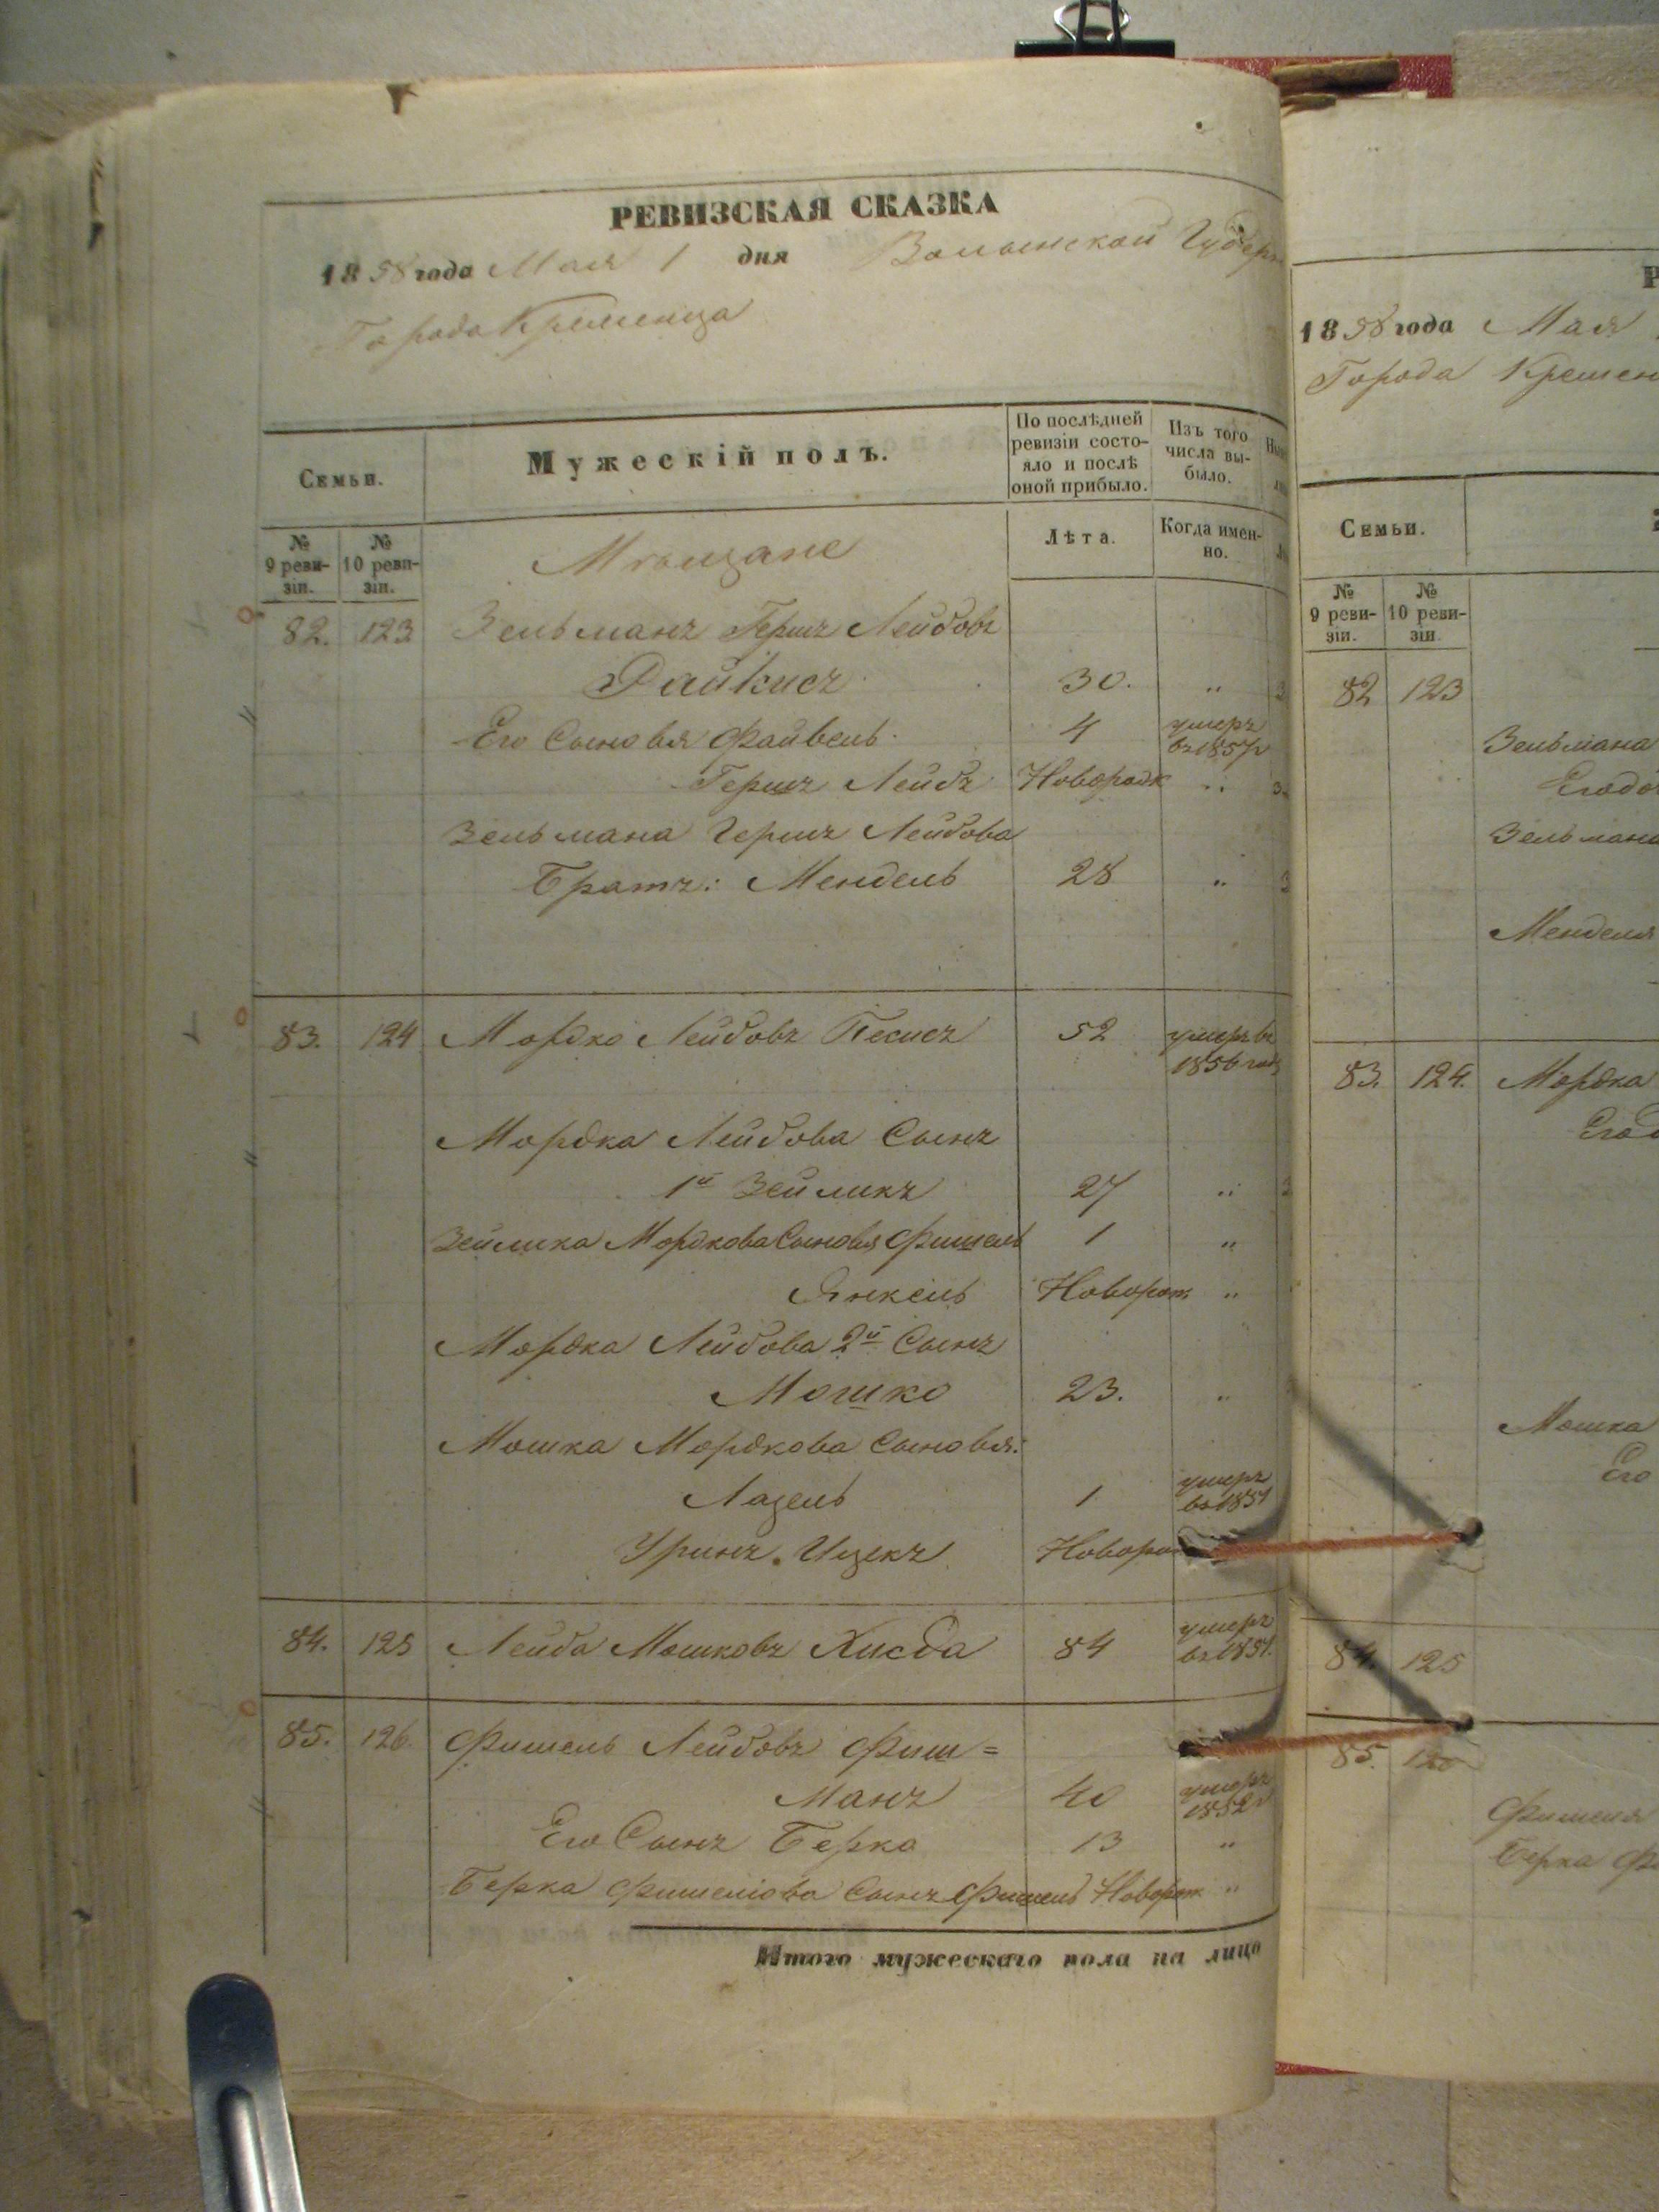 РЕВИЗСКАЯ СКАЗКА
1858 года Мая 1 дня Волынской Губерн
Города Кременца
Семьи.
Мужескій полъ.
По послѣдней ревизіи состо-
яло и послѣ
оной прибыло.
Изъ того
числа вы-
было.
№
9 реви-
зіи.
№
10 реви-
зіи.
Мѣщане
Лѣта.
Когда имен-
но.
82. 123 Зельманъ Гершъ Лейбовъ
Дайкисъ 30. "
Его Сыновья Файвель 4 умеръ
въ 1857 г
Гершъ Лейбъ Новорожд "
Зельмана Гершъ Лейбова
Братъ: Мендель 28 "
83. 124 Мордко Лейбовъ Песисъ 52 умеръ въ
1856 году
Мордка Лейбова Сынъ
1й Зейликъ 27 "
Зейлика Мордкова Сыновья Фишель 1 "
Янкель Новорож "
Мордка Лейбова 2й Сынъ
Мошко 23. "
Мошка Мордкова Сыновья:
Лазель 1 умеръ
въ 1851
Уринъ Ицекъ Новорож
84. 125 Лейба Мошковъ Хисда 84 умеръ
въ 1851.
85. 126. Фишель Лейбовъ Фиш=
манъ 40 умеръ
1852 г
Его Сынъ Берка 13 "
Берка Фишеліова Сынъ Фишель Новорож "
Итого мужескаго пола на лицо
Р
1858 года Мая
Города Кремен
Семьи.
№
9 реви-
зіи.
№
10 реви-
зіи.
82 123
Зельмана
Его до
Зельмана
Менделя
83. 124. Мордка
Его д
Мошка
Его
84. 125
85. 126
Фишеля
Берка Фи